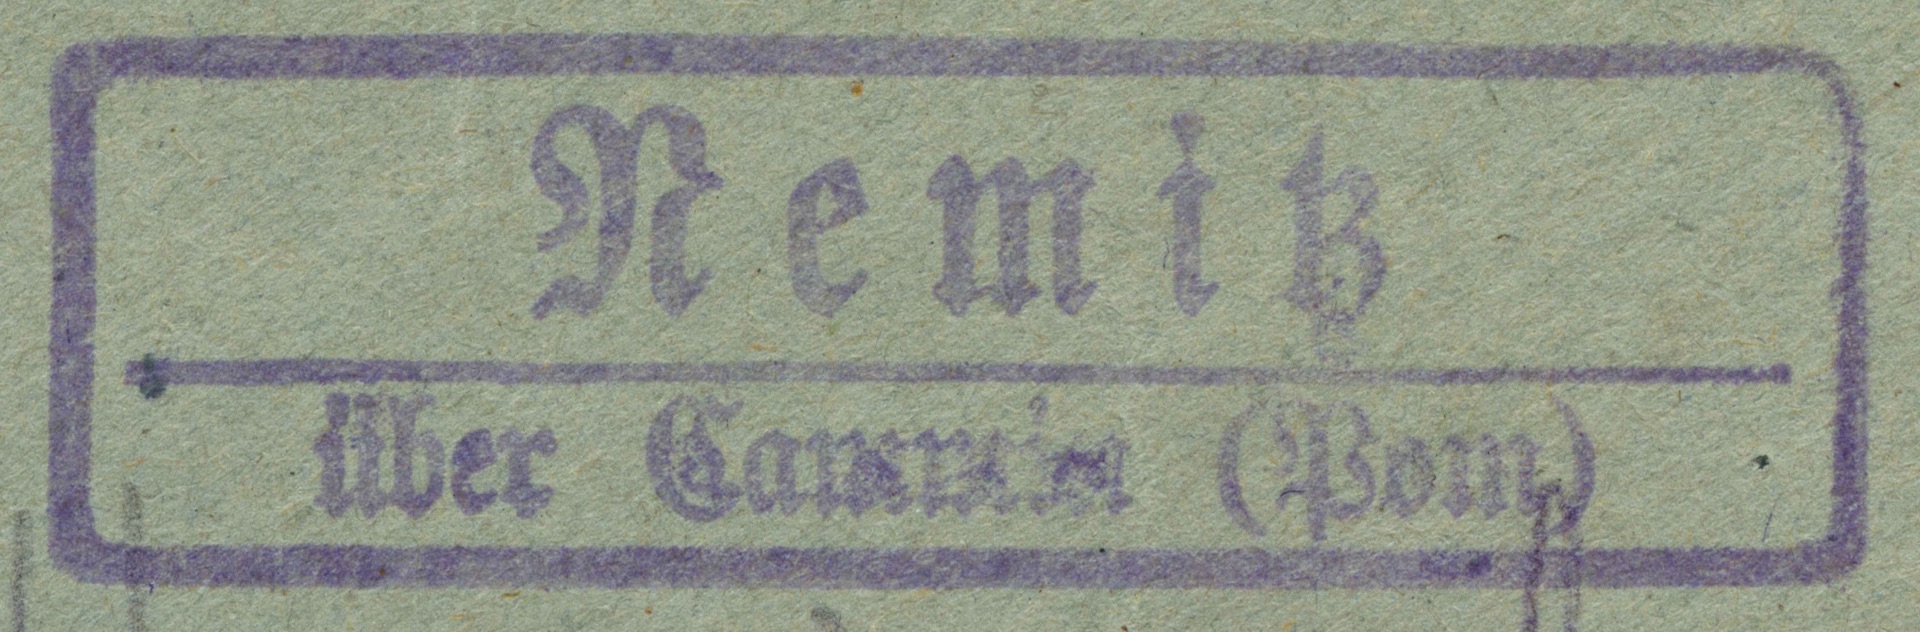 Nemitz
über Cammin (Pom)